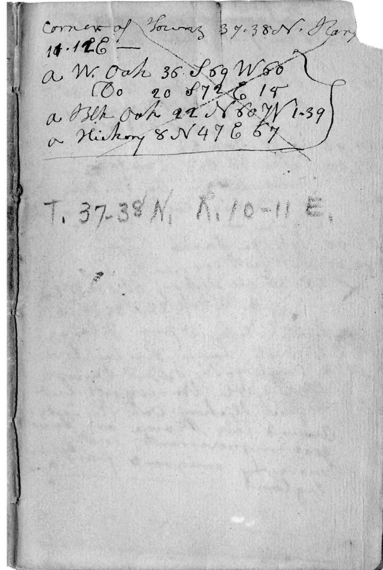 Corner of Towns 37.38N. Rang
11.12E —
a W. Oak 36 S 69 W 66
Do 20 S 72 E 15
a Blk Oak 22 N 60 W 1.39
a Hickory 8 N 47 E 67
T. 37-38 N. R. 10-11 E.